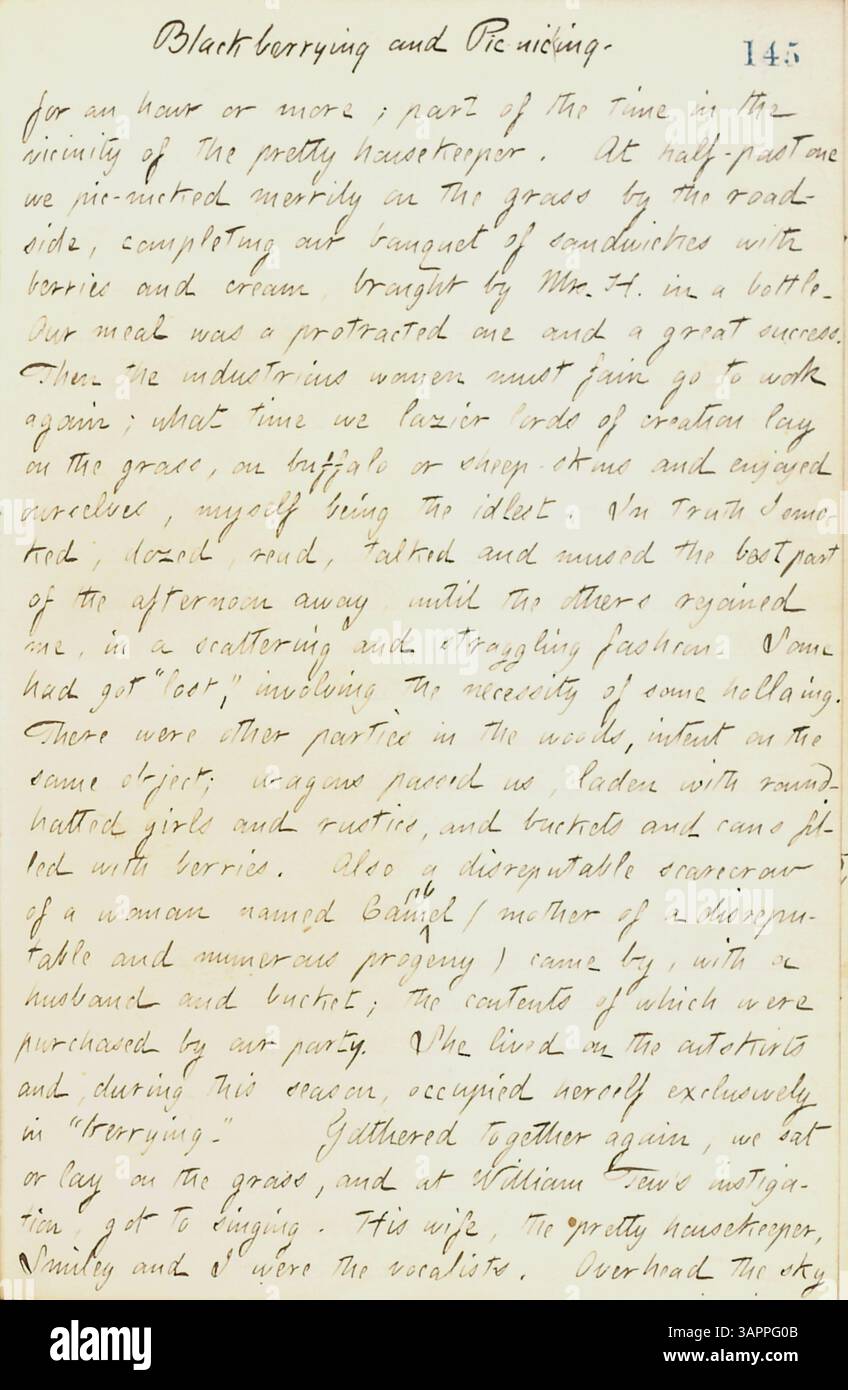 Blackberrying and Pic-nicing.
145
for an hour or more; part of the time in the
vicinity of the pretty housekeeper. At half-past one
we pic-nicked merrily on the grass by the road-
side, completing our banquet of sandwiches with
berries and cream, brought by Mr. H. in a bottle.
Our meal was a protracted one and a great success.
Then the industrious women must fain go to work
again; what time we lazier lords of creation lay
on the grass, on buffalo or sheep-skins and enjoyed
ourselves, myself being the idlest. In truth I smo-
ked, dozed, read, talked and mused the best part
of the afternoon away, until the others rejoined
me, in a scattering and straggling fashion. Some
had got "lost," involving the necessity of some hollaing.
There were other parties in the woods, intent on the
same object; wagons passed us, laden with round-
hatted girls and rustics, and buckets and cans fil-
led with berries. Also a disreputable scarecrow
of a woman named (mother of a disrepu-
table and numerous progeny) came by, with a
husband and bucket; the contents of which were
purchased by our party. She lived on the outskirts
and, during this season, occupied herself exclusively
in "berrying." Gathered together again, we sat
or lay on the grass, and at William Tew's instiga-
tion, got to singing. His wife, the pretty housekeeper,
Smiley and I were the vocalists. Overhead the sky
alamy
Image ID: 3APPG0B
www.alamy.com